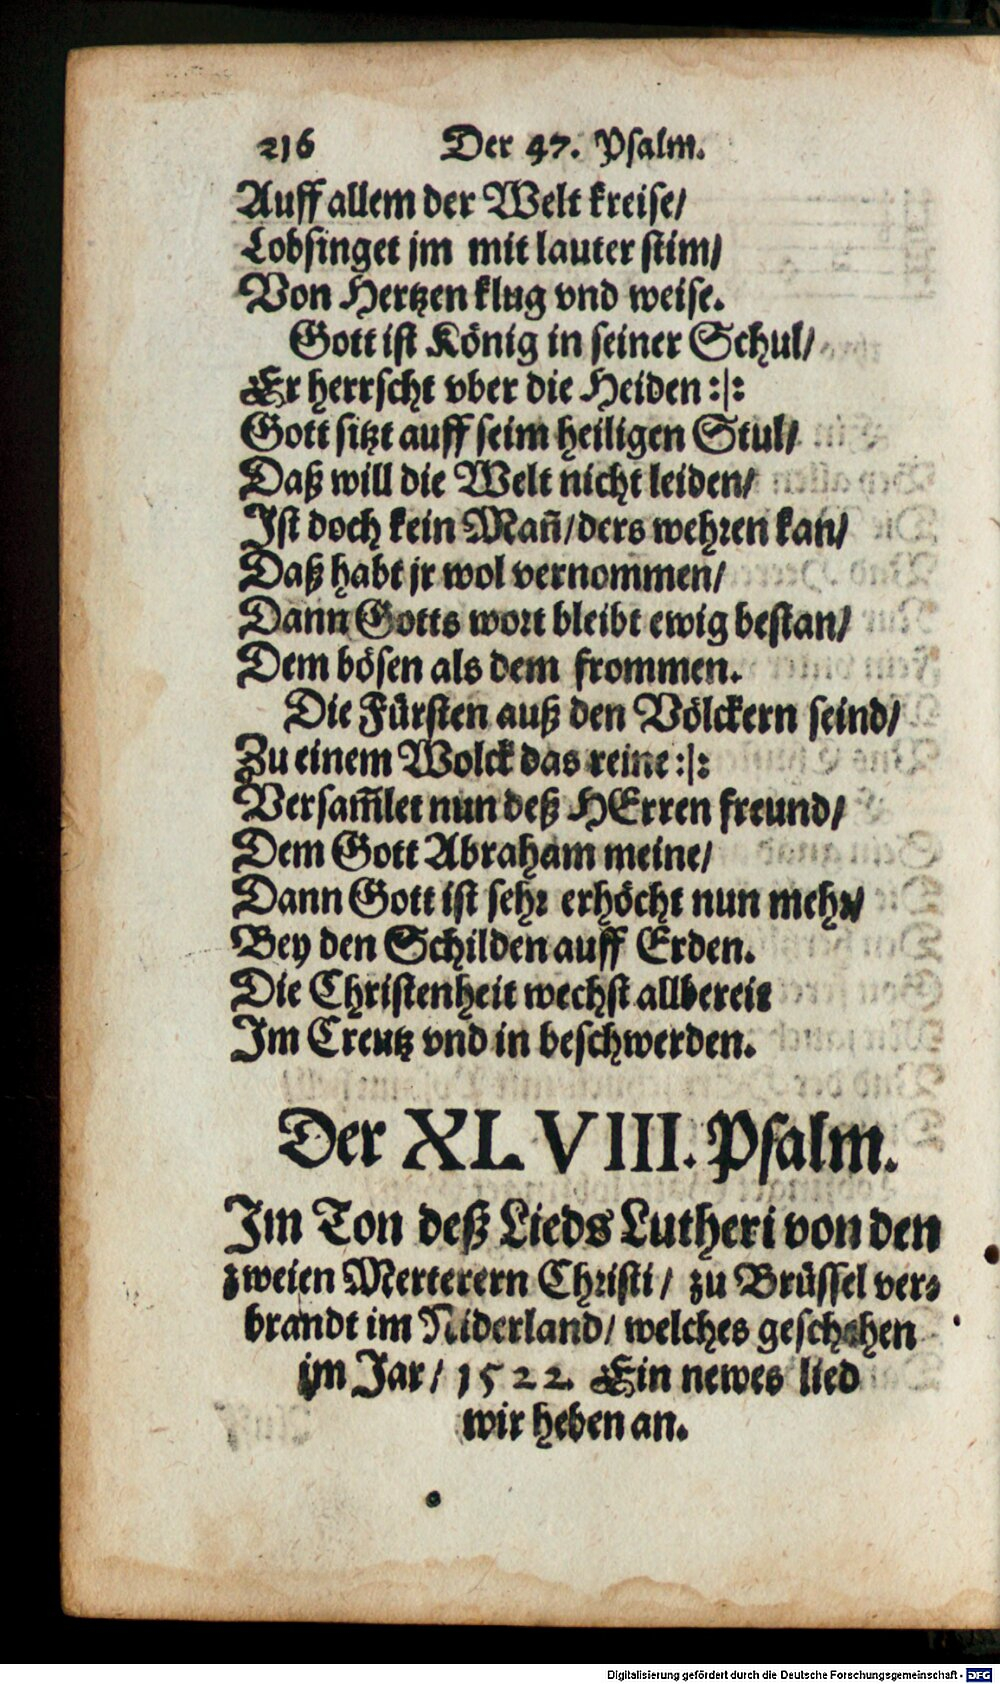 216 Der 47. Psalm.
Auff allem der Welt kreise/
Lobsinget jm mit lauter stim/
Von Hertzen klug vnd weise.
Gott ist König in seiner Schul/
Er herrscht vber die Heiden :|:
Gott sitzt auff seim heiligen Stul/
Daß will die Welt nicht leiden/
Ist doch kein Mañ/ders wehren kan/
Daß habt jr wol vernommen/
Dann Gotts wort bleibt ewig bestan/
Dem bösen als dem frommen.
Die Fürsten auß den Völckern seind/
Zu einem Wolck das reine :|:
Versam̃let nun deß HErren freund/
Dem Gott Abraham meine/
Dann Gott ist sehr erhöcht nun mehr/
Bey den Schilden auff Erden.
Die Christenheit wechst allbereit
Im Creutz vnd in beschwerden.
Der XLVIII. Psalm.
Im Ton deß Lieds Lutheri von den
zweien Merterern Christi/ zu Brüssel ver⸗
brandt im Niderland/ welches geschehen
im Jar/ 1522. Ein newes lied
wir heben an.
Digitalisierung gefördert durch die Deutsche Forschungsgemeinschaft - DFG